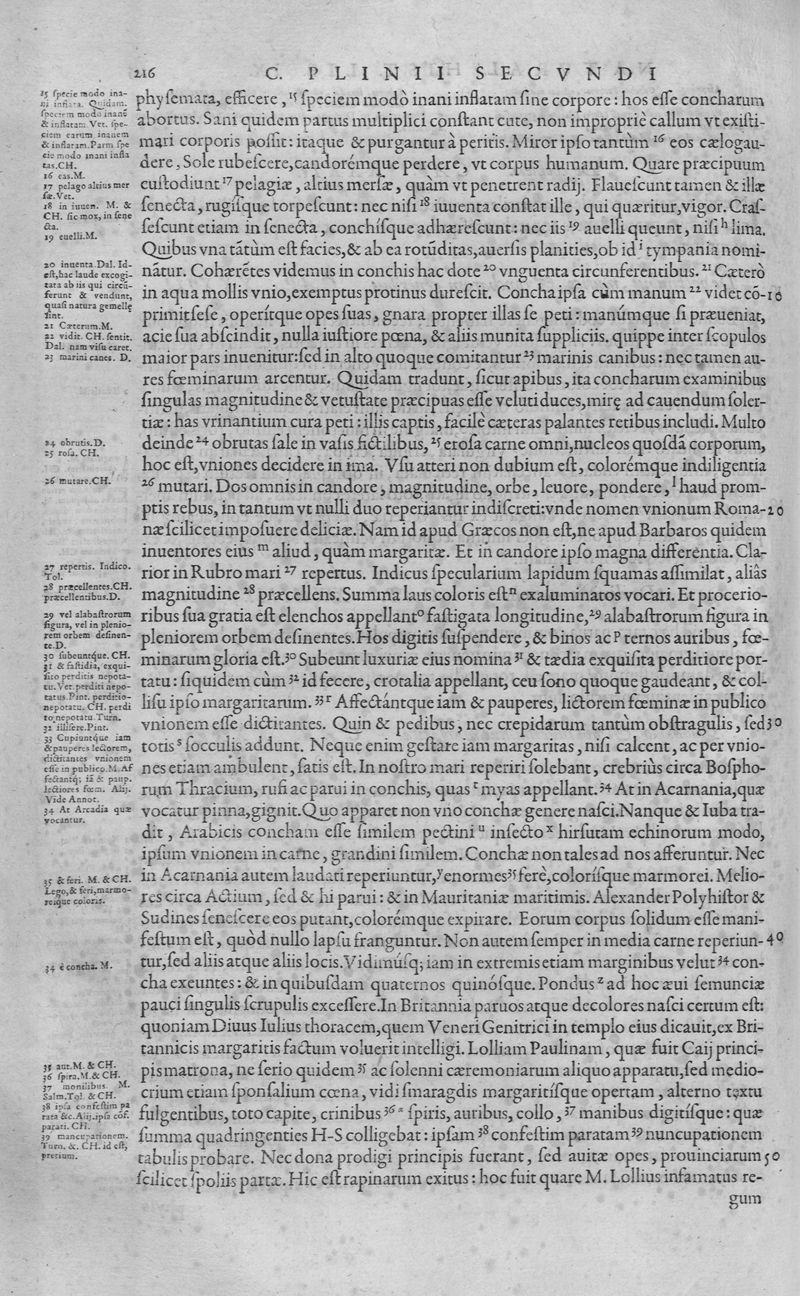 216 C. PLINII SECVNDI
physemata, efficere, ¹⁵ speciem modò inani inflatam sine corpore: hos esse concharum
abortus. Sani quidem partus multiplici constant cute, non impropriè callum vt existi-
mari corporis possit: itaque & purgantur à peritis. Miror ipso tantùm ¹⁶ eos cælogau-
dere, Sole rubescere, candorémque perdere, vt corpus humanum. Quare præcipuum
custodiunt ¹⁷ pelagiæ, altius mersæ, quàm vt penetrent radij. Flauescunt tamen & illæ
senecta, rugisque torpescunt: nec nisi ¹⁸ iuuenta constat ille, qui quæritur, vigor. Cras-
sescunt etiam in senecta, conchísque adhærescunt: nec iis ¹⁹ auelli queunt, nisi ʰ lima.
Quibus vna tãtùm est facies, & ab ea rotũditas, auersis planities, ob id ⁱ tympania nomi-
nãtur. Cohærẽtes videmus in conchis hac dote ²⁰ vnguenta circunferentibus. ²¹ Cæterò
in aqua mollis vnio, exemptus protinus durescit. Concha ipsa cùm manum ²² videt cõ- 10
primit sese, operítque opes suas, gnara propter illas se peti: manúmque si præueniat,
acie sua abscindit, nulla iustiore pœna, & aliis munita suppliciis. quippe inter scopulos
maior pars inuenitur: sed in alto quoque comitantur ²³ marinis canibus: nec tamen au-
res fœminarum arcentur. Quidam tradunt, sicut apibus, ita concharum examinibus
singulas magnitudine & vetustate præcipuas esse veluti duces, mirę ad cauendum soler-
tiæ: has vrinantium cura peti: illis captis, facilè cæteras palantes retibus includi. Multo
deinde ²⁴ obrutas sale in vasis fictilibus, ²⁵ erosa carne omni, nucleos quosdã corporum,
hoc est, vniones decidere in ima. Vsu atteri non dubium est, colorémque indiligentia
²⁶ mutari. Dos omnis in candore, magnitudine, orbe, leuore, pondere, ˡ haud prom-
ptis rebus, in tantum vt nulli duo reperiantur indiscreti: vnde nomen vnionum Roma- 20
næ scilicet imposuere deliciæ. Nam id apud Græcos non est, ne apud Barbaros quidem
inuentores eius ᵐ aliud, quàm margaritæ. Et in candore ipso magna differentia. Cla-
rior in Rubro mari ²⁷ repertus. Indicus specularium lapidum squamas assimilat, aliàs
magnitudine ²⁸ præcellens. Summa laus coloris est ⁿ exaluminatos vocari. Et procerio-
ribus sua gratia est elenchos appellant ᵒ fastigata longitudine, ²⁹ alabastrorum figura in
pleniorem orbem desinentes. Hos digitis suspendere, & binos ac ᵖ ternos auribus, fœ-
minarum gloria est. ³⁰ Subeunt luxuriæ eius nomina ³¹ & tædia exquisita perditiore por-
tatu: siquidem cùm ³² id fecere, crotalia appellant, ceu sono quoque gaudeant, & col-
lisu ipso margaritarum. ³³ ʳ Affectántque iam & pauperes, lictorem fœminæ in publico
vnionem esse dictitantes. Quin & pedibus, nec crepidarum tantùm obstragulis, sed 30
totis ˢ socculis addunt. Neque enim gestare iam margaritas, nisi calcent, ac per vnio-
nes etiam ambulent, satis est. In nostro mari reperiri solebant, crebriùs circa Bospho-
rum Thracium, rufi ac parui in conchis, quas ᵗ myas appellant. ³⁴ At in Acarnania, quæ
vocatur pinna, gignit. Quo apparet non vno conchæ genere nasci. Nanque & Iuba tra-
dit, Arabicis concham esse similem pectini ᵘ insecto ˣ hirsutam echinorum modo,
ipsum vnionem in carne, grandini similem. Conchæ non tales ad nos afferuntur. Nec
in Acarnania autem laudati reperiuntur, ʸ enormes ³⁵ ferè, colorísque marmorei. Melio-
res circa Actium, sed & hi parui: & in Mauritaniæ maritimis. Alexander Polyhistor &
Sudines senescere eos putant, colorémque expirare. Eorum corpus solidum esse mani-
festum est, quòd nullo lapsu franguntur. Non autem semper in media carne reperiun- 40
tur, sed aliis atque aliis locis. Vidimúsq; iam in extremis etiam marginibus velut ³⁴ con-
cha exeuntes: & in quibusdam quaternos quinósque. Pondus ᶻ ad hoc æui semunciæ
pauci singulis scrupulis excessere. In Britannia paruos atque decolores nasci certum est:
quoniam Diuus Iulius thoracem, quem Veneri Genitrici in templo eius dicauit, ex Bri-
tannicis margaritis factum voluerit intelligi. Lolliam Paulinam, quæ fuit Caij princi-
pis matrona, ne serio quidem ³⁵ ac solenni cæremoniarum aliquo apparatu, sed medio-
crium etiam sponsalium cœna, vidi smaragdis margaritísque opertam, alterno textu
fulgentibus, toto capite, crinibus ³⁶ ᵃ spiris, auribus, collo, ³⁷ manibus digitísque: quæ
summa quadringenties H-S colligebat: ipsam ³⁸ confestim paratam ³⁹ nuncupationem
tabulis probare. Nec dona prodigi principis fuerant, sed auitæ opes, prouinciarum 50
scilicet spoliis partæ. Hic est rapinarum exitus: hoc fuit quare M. Lollius infamatus re-
gum
15 specie modo ina-
ni inflata. Quidam.
speciem modo inanē
& inflatam Vet. spe-
ciem earum inanem
& inflatam. Parm spe
cie modo inani infla
tas. CH.
16 eas. M.
17 pelago altius mer
sæ. Vet.
18 in iuuen. M. &
CH. sic mox, in sene
cta.
19 euelli. M.
20 inuenta. Dal. Id-
est, hac laude excogi-
tata ab iis qui circū-
ferunt & vendunt,
quasi natura gemellę
sint.
21 Cæterum. M.
22 vidit. CH. sentit.
Dal. nam visu caret.
23 marini canes. D.
24 obrutis. D.
25 rosa. CH.
26 mutare. CH.
27 repertis. Indico.
Tol.
28 præcellentes. CH.
præcellentibus. D.
29 vel alabastrorum
figura, vel in plenio-
rem orbem desinen-
te. D.
30 subeuntque. CH.
31 & fastidia, exqui-
sito perditis nepota-
tu. Vet. perditi nepo-
tatus. Pint. perditio-
nepotatu. CH. perdi
to nepotatu. Turn.
32 illisere. Pint.
33 Cupiuntque iam
& pauperes lectorem,
dictitantes vnionem
esse in publico. M. Af
fectantq; iā & paup.
lectiores fœm. Alij.
Vide Annot.
34 At Arcadia quæ
vocantur.
35 & feri. M. & CH.
Lego, & feri, marmo-
reique coloris.
34 è concha. M.
35 aut. M. & CH.
36 spira. M. & CH.
37 monilibus. M.
Salm. Tol. & CH.
38 ipsa confestim pa
rata &c. Alij. ipsa cōf.
parari. CH.
39 mancupationem.
Turn. &. CH. id est,
pretium.